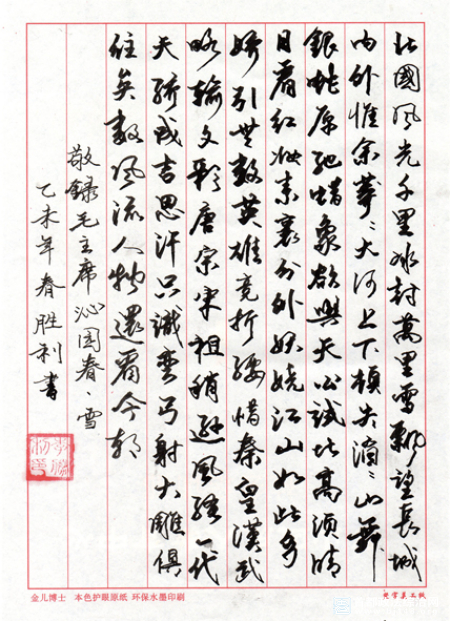 北國风光千里冰封萬里雪飘望長城
内外惟余莽〻大河上下顿失滔〻山舞
銀蛇原驰蜡象欲與天公試比高须晴
日看红妆素裹分外妖娆江山如此多
娇引無数英雄竞折腰惜秦皇漢武
略输文彩唐宗宋祖稍逊风骚一代
天骄成吉思汗只識弯弓射大雕俱
往矣数风流人物還看今朝
敬録毛主席沁园春、雪
乙未年春胜利書
金儿博士 本色护眼原纸 环保水墨印刷